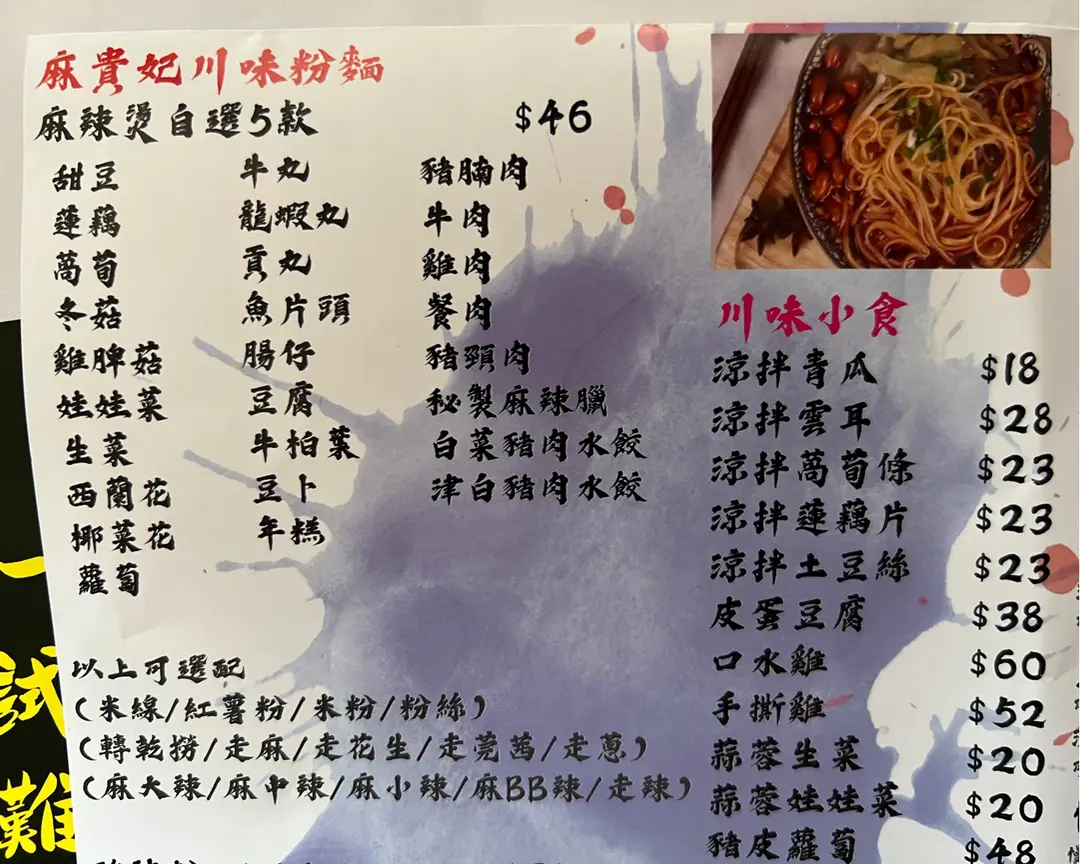 麻貴妃川味粉麵
麻辣燙自選5款 $46
甜豆
蓮藕
萵荀
冬菇
雞脾菇
娃娃菜
生菜
西蘭花
椰菜花
蘿蔔
牛丸
龍蝦丸
貢丸
魚片頭
腸仔
豆腐
牛柏葉
豆卜
年糕
豬腩肉
牛肉
雞肉
餐肉
豬頸肉
秘製麻辣臘
白菜豬肉水餃
津白豬肉水餃
以上可選配
(米線/紅薯粉/米粉/粉絲)
(轉乾撈/走麻/走花生/走莞茜/走蔥)
(麻大辣/麻中辣/麻小辣/麻BB辣/走辣)
川味小食
涼拌青瓜 $18
涼拌雲耳 $28
涼拌萵荀條 $23
涼拌蓮藕片 $23
涼拌土豆絲 $23
皮蛋豆腐 $38
口水雞 $60
手撕雞 $52
蒜蓉生菜 $20
蒜蓉娃娃菜 $20
豬皮蘿蔔 $48
試
難